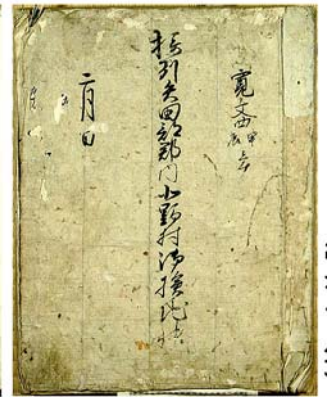 寛文四甲辰年
摂州矢田部郡内小野村御検地帳
二月日